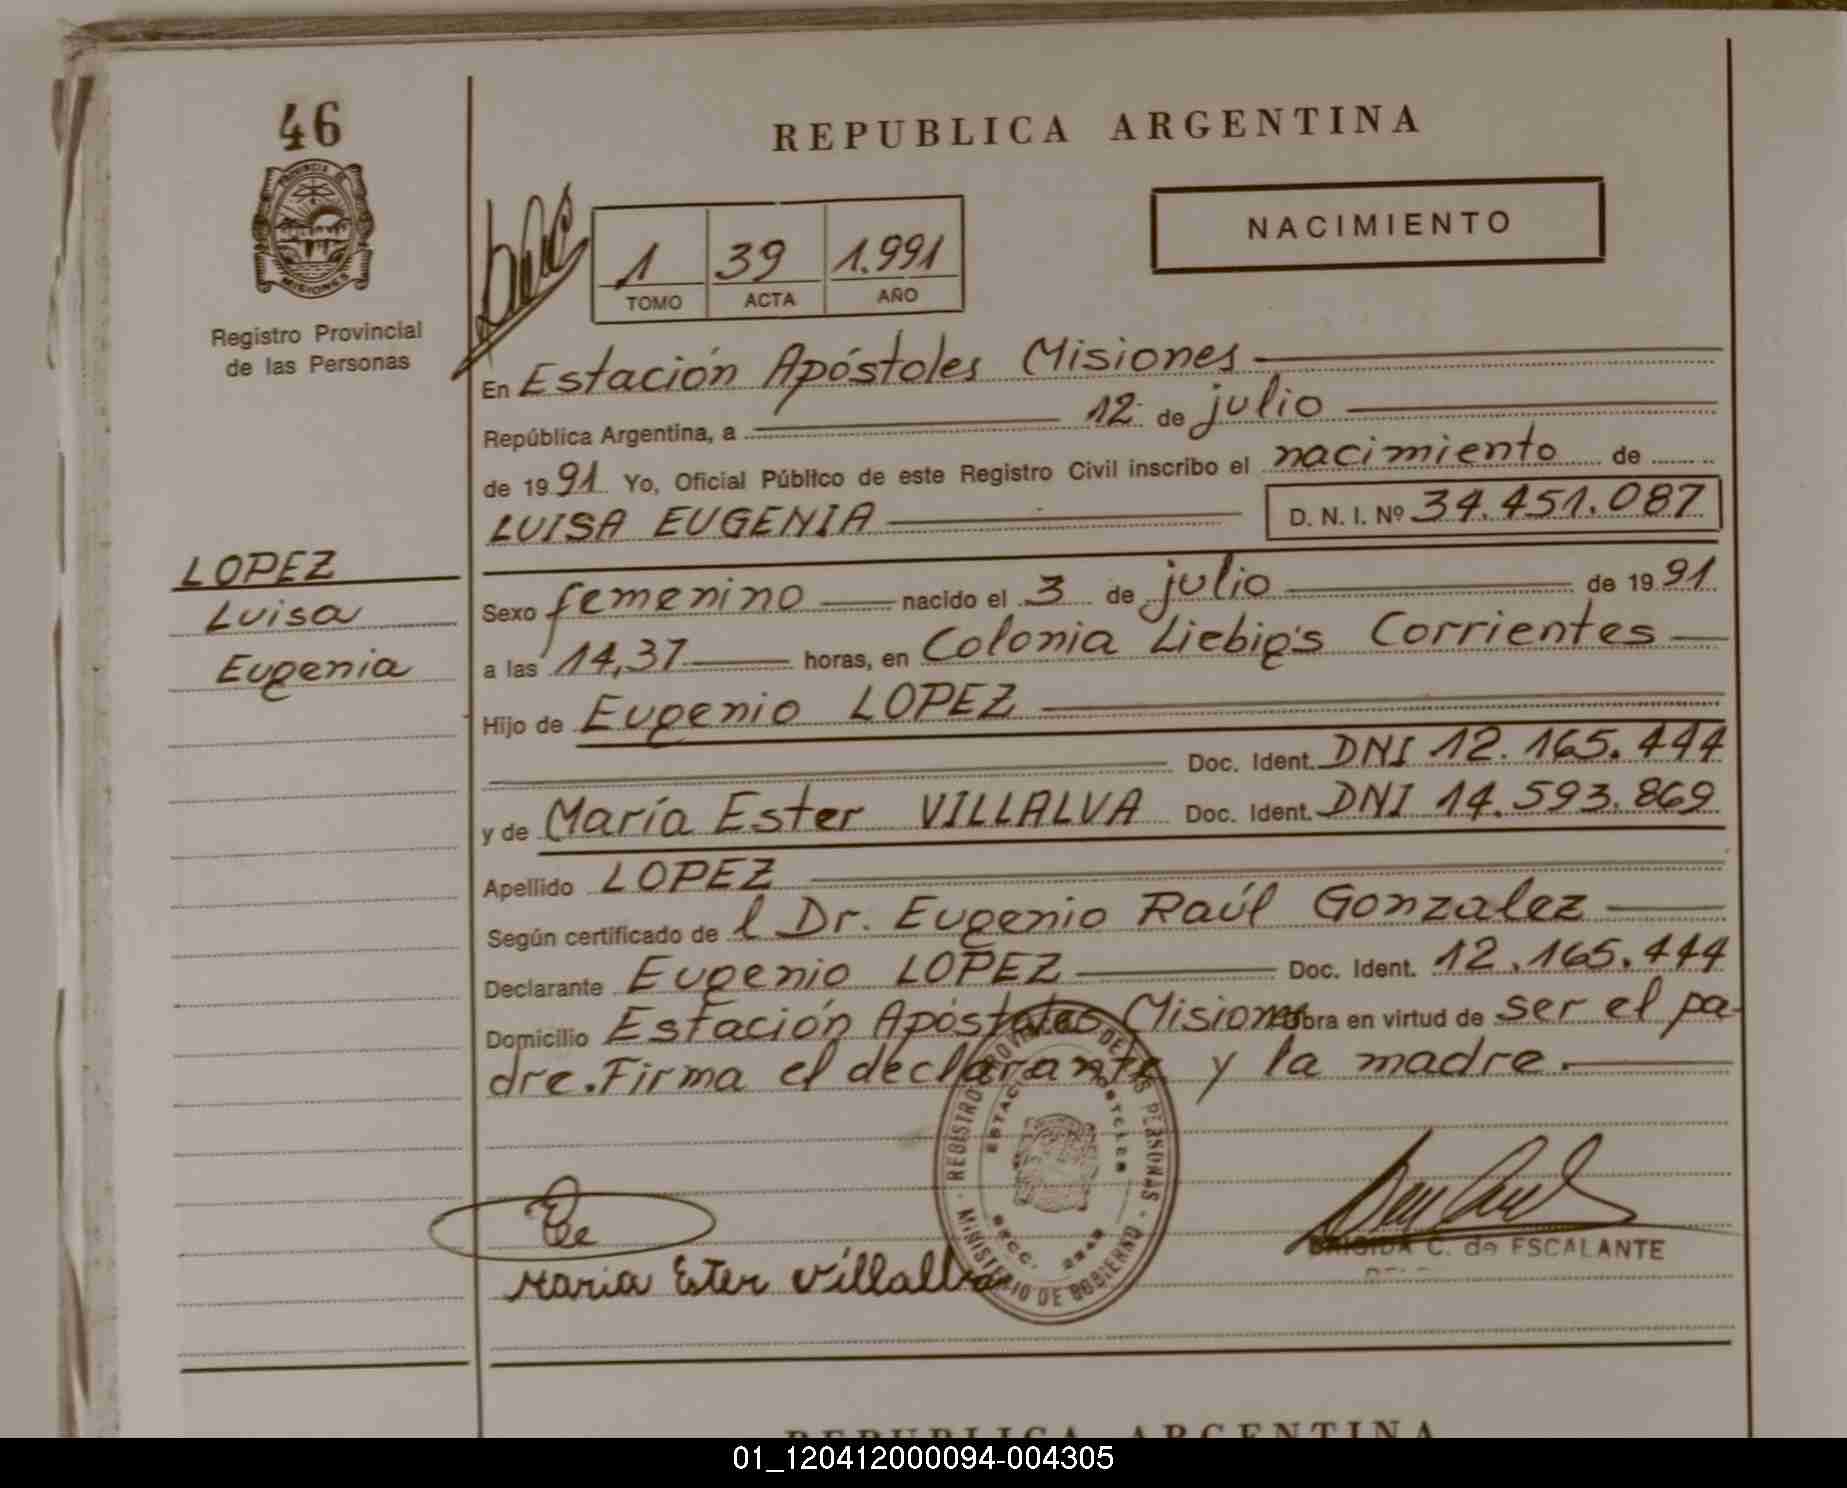 46
PROVINCIA DE
MISIONES
Registro Provincial
de las Personas
REPUBLICA ARGENTINA
1 39 1.991
TOMO ACTA AÑO
NACIMIENTO
En Estación Apóstoles Misiones
República Argentina, a 12 de julio
de 1991 Yo, Oficial Público de este Registro Civil inscribo el nacimiento de
LUISA EUGENIA D. N. I. Nº 34.451.087
LOPEZ
Luisa
Eugenia
Sexo femenino nacido el 3 de julio de 1991
a las 14,37 horas, en Colonia Liebig's Corrientes
Hijo de Eugenio LOPEZ
Doc. Ident. DNI 12.165.444
y de María Ester VILLALVA Doc. Ident. DNI 14.593.869
Apellido LOPEZ
Según certificado de l Dr. Eugenio Raúl Gonzalez
Declarante Eugenio LOPEZ Doc. Ident. 12.165.444
Domicilio Estación Apóstoles Misiones obra en virtud de ser el pa-
dre. Firma el declarante y la madre.
REGISTRO PROVINCIAL DE LAS PERSONAS
MINISTERIO DE GOBIERNO
Maria Ester Villalba
BRIGIDA C. de ESCALANTE
REPUBLICA ARGENTINA
01_120412000094-004305